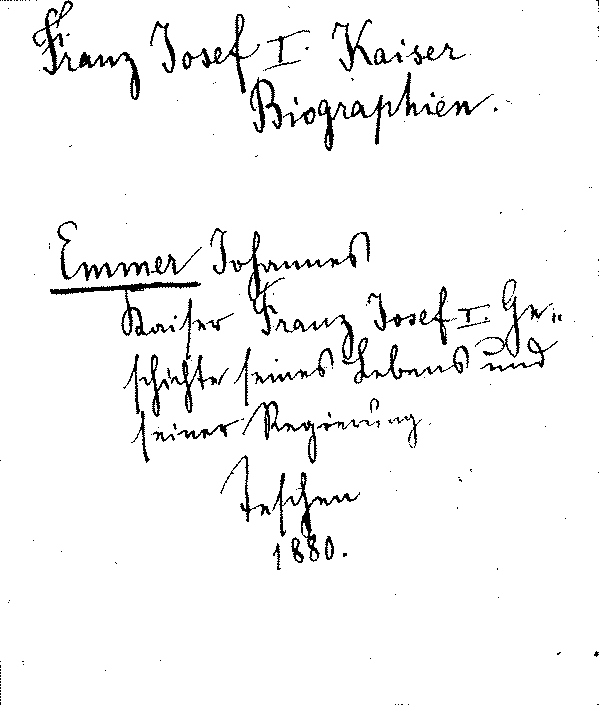 Franz Josef I. Kaiser
Biographien.
Emmer Johannes
Kaiser Franz Josef I. Ge-
schichte seines Lebens und
seiner Regierung
Teschen
1880.